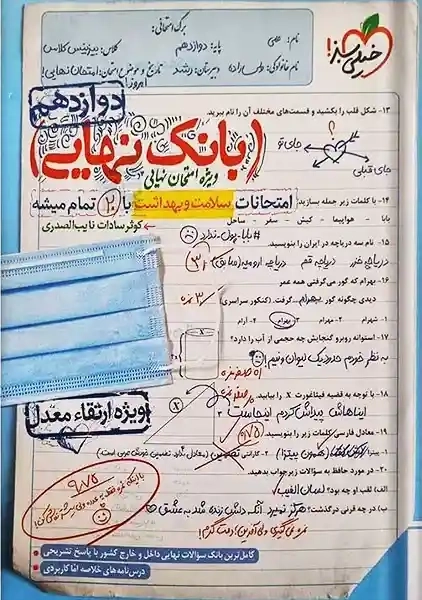 برگ امتحانی:
خیلی سبز!
نام: علی
پایه: دوازدهم
کلاس: بیزینس کلاس
تاریخ و موضوع امتحان: امتحان نهایی!
امروز!
دوازدهم
۱۳- شکل قلب را بکشید و قسمت‌های مختلف آن را نام ببرید.
؟
جای تو
جای قبلی
بانک نهایی
ویژه امتحان نهایی
۱۴- با کلمات زیر جمله بسازید:
امتحانات سلامت و بهداشت با ۲۰ تمام میشه
بابا - هواپیما - کیش - سفر - ساحل
کوثر سادات نایب الصدری
#بابا_پول_ندارد
۱۵- نام سه دریاچه در ایران را بنویسید.
دریاچه خزر دریاچه قم دریاچه ارومیه (سابق)
۱۶- بهرام که گور می‌گرفتی همه عمر
دیدی چگونه گور بهرام گرفت. (کنکور سراسری)
۱- شهرام ۲- مهرام ۳- بهرام ۴- آرام
۱۷- استوانه روبرو گنجایش چه حجمی از آب را دارد؟
به نظر خودم حدود یک لیوان و نیم!
۱۸- با توجه به قضیه فیثاغورث x را بیابید.
ایناهاش پیداش کردم اینجاست
ویژه ارتقاء معدل
۱۹- معادل فارسی کلمات زیر را بنویسید.
۲- گارانتی
۲۰- در مورد حافظ به سؤالات زیر جواب بدهید.
الف) لقب او چه بود؟ لسان الغیب
ب) در چه قرنی درگذشت؟ هرگز نمیرد آنکه دلش زنده شد به عشق
نمره نمی‌گیری ولی آفرین! دمت گرم!!
۹/۷۵
کامل‌ترین بانک سؤالات نهایی داخل و خارج کشور با پاسخ تشریحی
درس‌نامه‌های خلاصه اما کاربردی